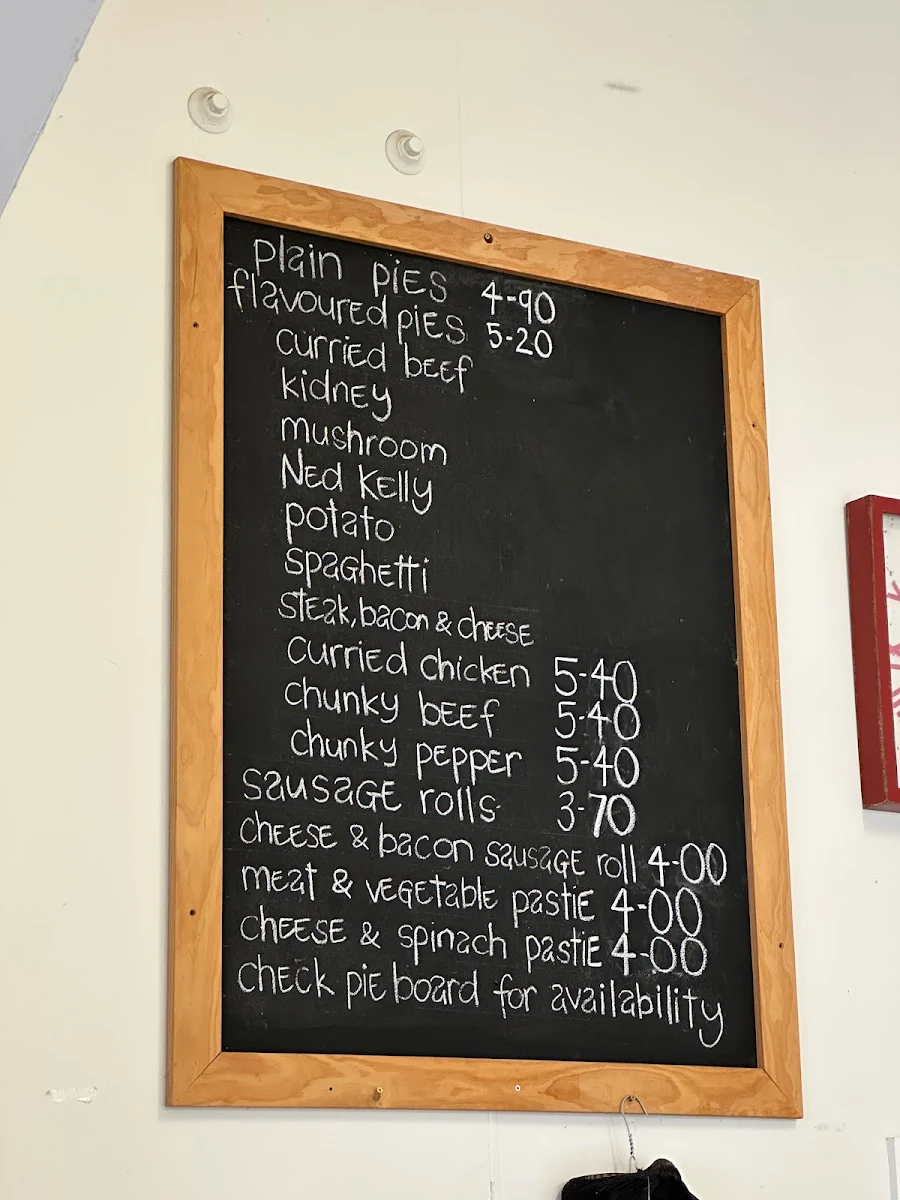 plain pies 4-90
flavoured pies 5-20
curried beef
kidney
mushroom
Ned Kelly
potato
spaghetti
steak, bacon & cheese
curried chicken 5-40
chunky beef 5-40
chunky pepper 5-40
sausage rolls 3-70
cheese & bacon sausage roll 4-00
meat & vegetable pastie 4-00
cheese & spinach pastie 4-00
check pie board for availability